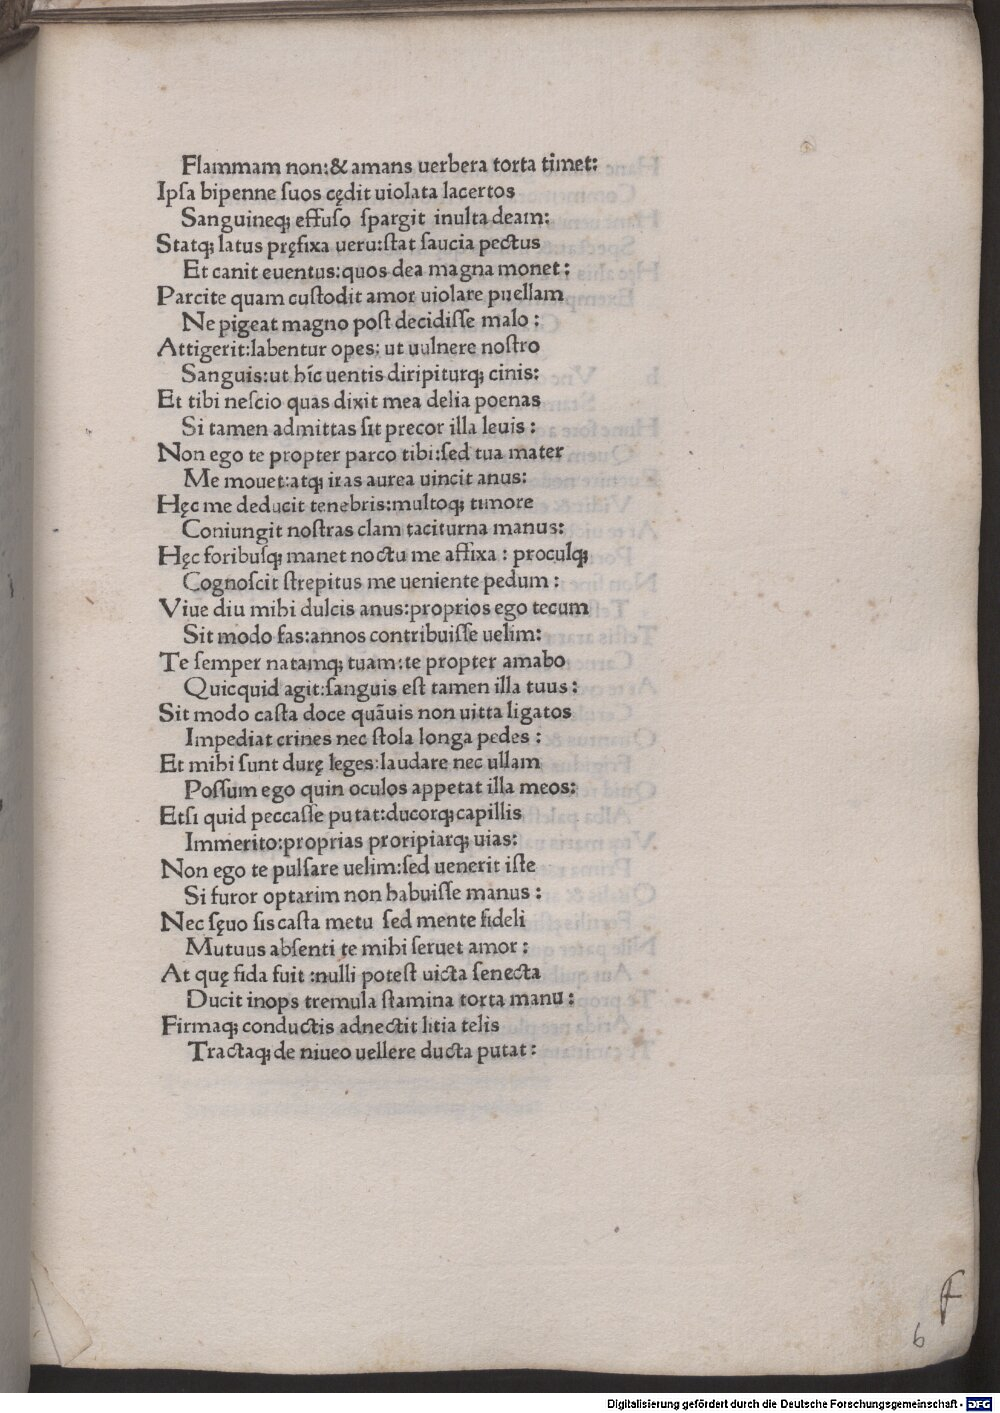 Flammam non:& amans uerbera torta timet:
Ipſa bipenne ſuos cędit uiolata lacertos
Sanguineqꝫ effuſo ſpargit inulta deam:
Statqꝫ latus pręfixa ueru:ſtat ſaucia pectus
Et canit euentus:quos dea magna monet:
Parcite quam cuſtodit amor uiolare puellam
Ne pigeat magno poſt decidiſſe malo:
Attigerit:labentur opes: ut uulnere noſtro
Sanguis:ut hic uentis diripiturqꝫ cinis:
Et tibi neſcio quas dixit mea delia poenas
Si tamen admittas ſit precor illa leuis:
Non ego te propter parco tibi:ſed tua mater
Me mouet:atqꝫ iras aurea uincit anus:
Hęc me deducit tenebris:multoqꝫ timore
Coniungit noſtras clam taciturna manus:
Hęc foribuſqꝫ manet noctu me affixa: proculqꝫ
Cognoſcit ſtrepitus me ueniente pedum:
Viue diu mihi dulcis anus:proprios ego tecum
Sit modo fas:annos contribuiſſe uelim:
Te ſemper natamqꝫ tuam:te propter amabo
Quicquid agit:ſanguis eſt tamen illa tuus:
Sit modo caſta doce quāuis non uitta ligatos
Impediat crines nec ſtola longa pedes:
Et mihi ſunt durę leges:laudare nec ullam
Poſſum ego quin oculos appetat illa meos:
Etſi quid peccaſſe putat:ducorqꝫ capillis
Immerito:proprias proripiarqꝫ uias:
Non ego te pulſare uelim:ſed uenerit iſte
Si furor optarim non habuiſſe manus:
Nec ſęuo ſis caſta metu ſed mente fideli
Mutuus abſenti te mihi ſeruet amor:
At quę fida fuit:nulli poteſt uicta ſenecta
Ducit inops tremula ſtamina torta manu:
Firmaqꝫ conductis adnectit litia telis
Tractaqꝫ de niueo uellere ducta putat:
f
6
Digitalisierung gefördert durch die Deutsche Forschungsgemeinschaft - DFG